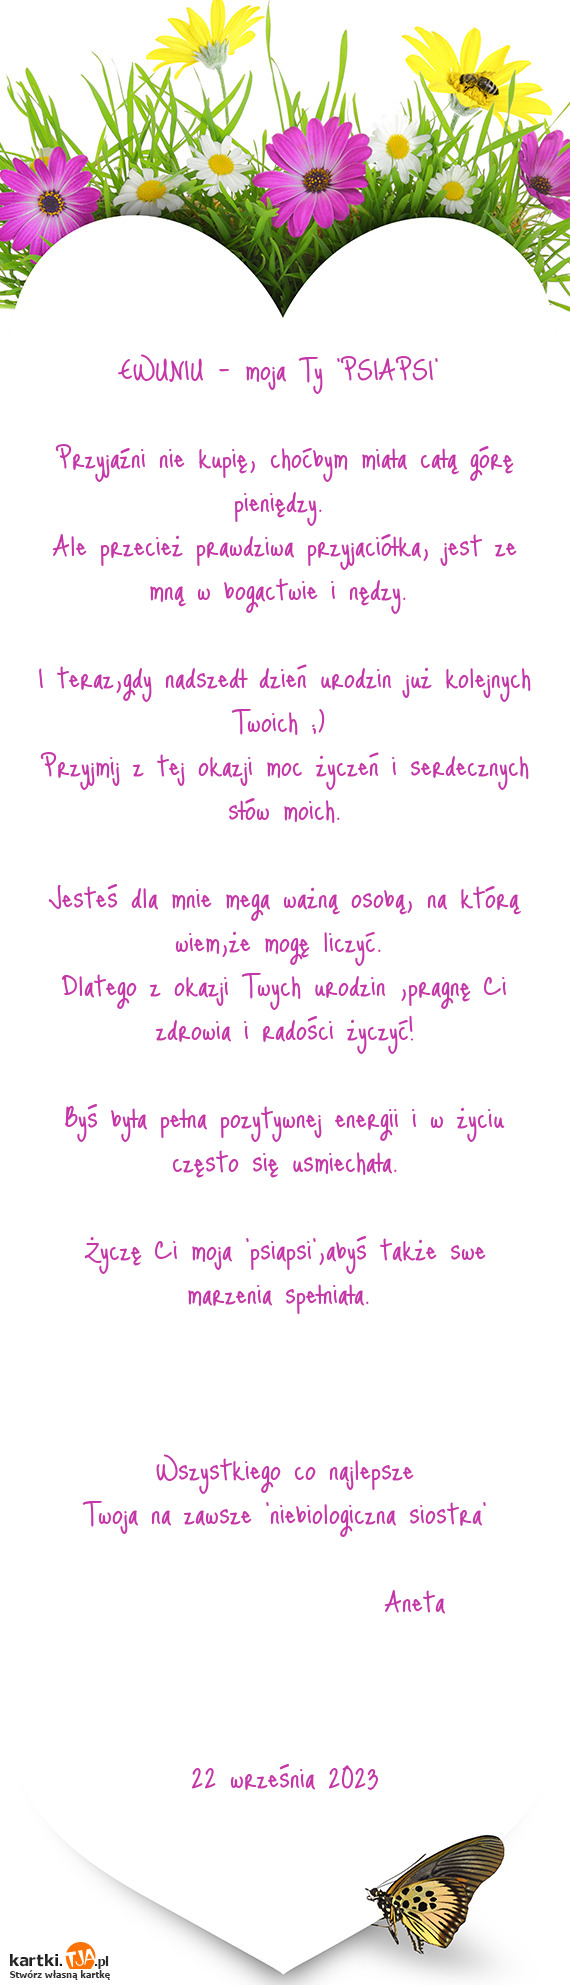 EWUNIU - moja Ty 'PSIAPSI'
Przyjaźni nie kupię, choćbym miała całą górę
pieniędzy.
Ale przecież prawdziwa przyjaciółka, jest ze
mną w bogactwie i nędzy.
I teraz,gdy nadszedł dzień urodzin już kolejnych
Twoich ;)
Przyjmij z tej okazji moc życzeń i serdecznych
słów moich.
Jesteś dla mnie mega ważną osobą, na którą
wiem,że mogę liczyć.
Dlatego z okazji Twych urodzin ,pragnę Ci
zdrowia i radości życzyć!
Byś była pełna pozytywnej energii i w życiu
często się usmiechała.
Życzę Ci moja 'psiapsi',abyś także swe
marzenia spełniała.
Wszystkiego co najlepsze
Twoja na zawsze 'niebiologiczna siostra'
Aneta
22 września 2023
kartki.TJA.pl
Stwórz własną kartkę